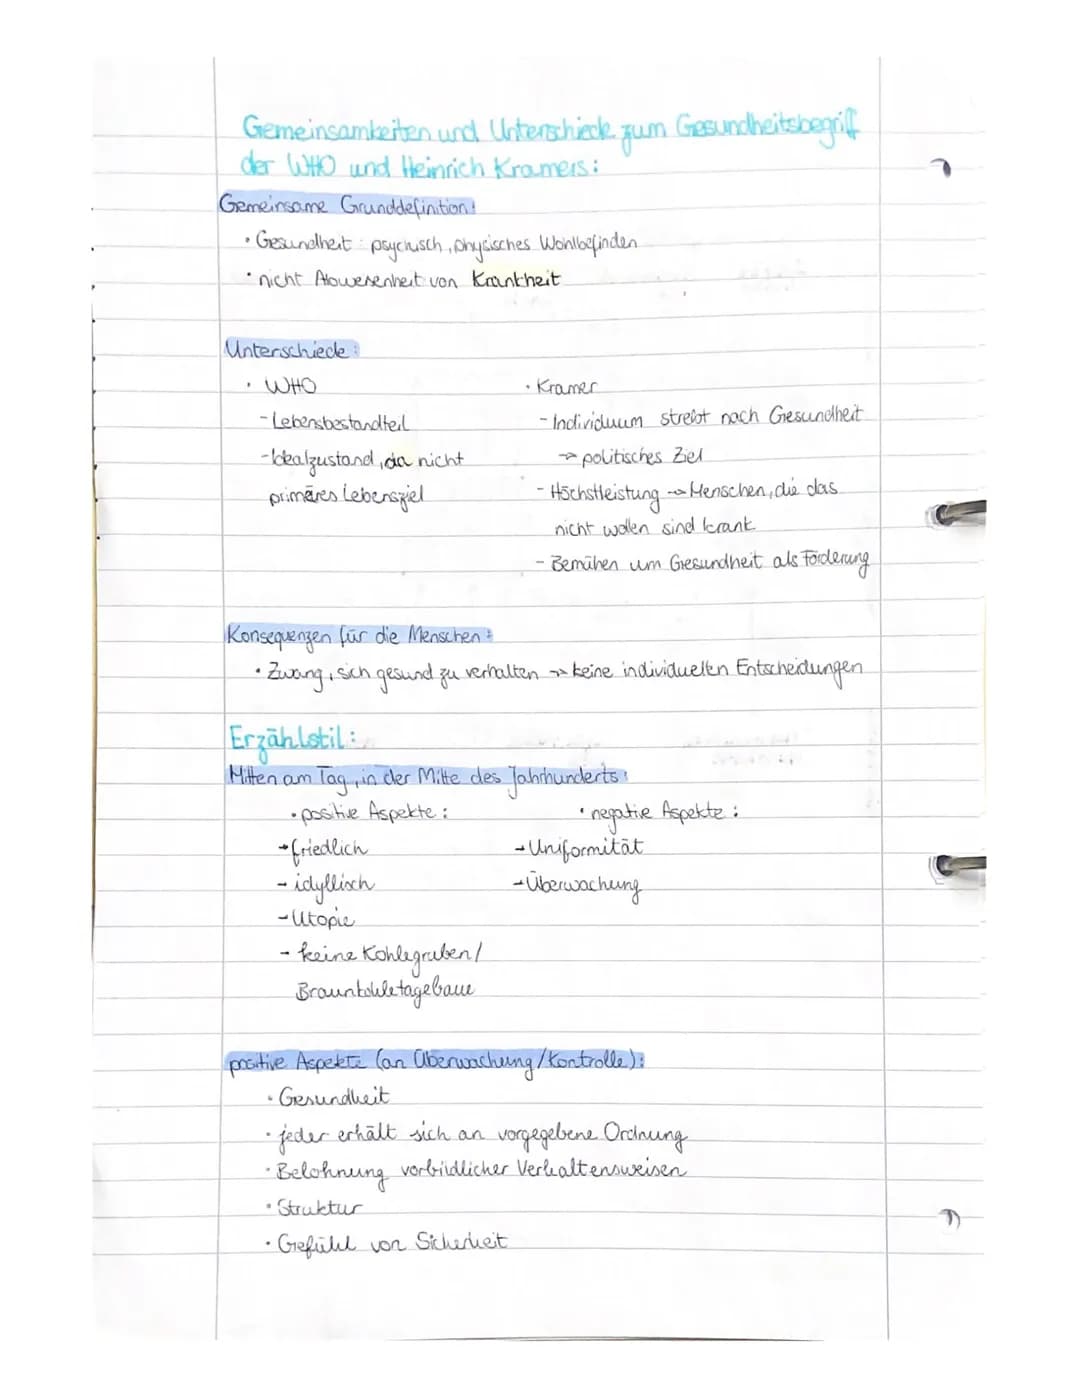 Gemeinsamkeiten und Unterschiede zum Gesundheitsbegriff
der WHO und Heinrich Kramers:
Gemeinsame Grunddefinition:
• Gesundheit: psychisch, physisches Wohlbefinden
• nicht Abwesenheit von Krankheit
Unterschiede:
• WHO
- Lebensbestandteil
- Idealzustand, da nicht
primäres Lebensziel
• Kramer
- Individuum strebt nach Gesundheit
→ politisches Ziel
- Höchstleistung → Menschen, die das
nicht wollen sind krank
- Bemühen um Gesundheit als Forderung
Konsequenzen für die Menschen:
• Zwang, sich gesund zu verhalten → keine individuellen Entscheidungen
Erzählstil:
Mitten am Tag, in der Mitte des Jahrhunderts:
• positive Aspekte:
- friedlich
- idyllisch
- Utopie
- keine Kohlegruben/
Braunkohletagebaue
• negatie Aspekte:
- Uniformität
- Überwachung
positive Aspekte (an Überwachung/Kontrolle):
• Gesundheit
• jeder erhält sich an vorgegebene Ordnung
• Belohnung vorbildlicher Verhaltensweisen
• Struktur
• Gefühl von Sicherheit